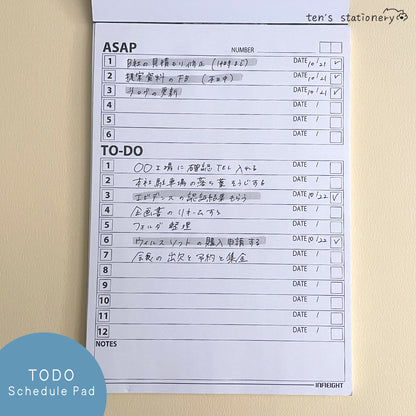 ten's stationery
ASAP NUMBER
1 自社の見積もり修正 (14時まで) DATE 10/21 ✓
2 提案資料のFB (本日中) DATE 10/21 ✓
3 ブログの更新 DATE 10/21 ✓
4 DATE /
5 DATE /
6 DATE /
TO-DO
1 〇〇工場に確認TEL入れる DATE /
2 本社駐車場の落ち葉そうじする DATE /
3 エビデンスの認証結果もらう DATE 10/22 ✓
4 企画書のリネームする DATE /
5 フォルダ整理 DATE /
6 ウイルスソフトの購入申請する DATE 10/22 ✓
7 会長の出欠と予約と集金 DATE /
8 DATE /
9 DATE /
10 DATE /
11 DATE /
12 DATE /
NOTES
INFIEIGHT
TODO
Schedule Pad